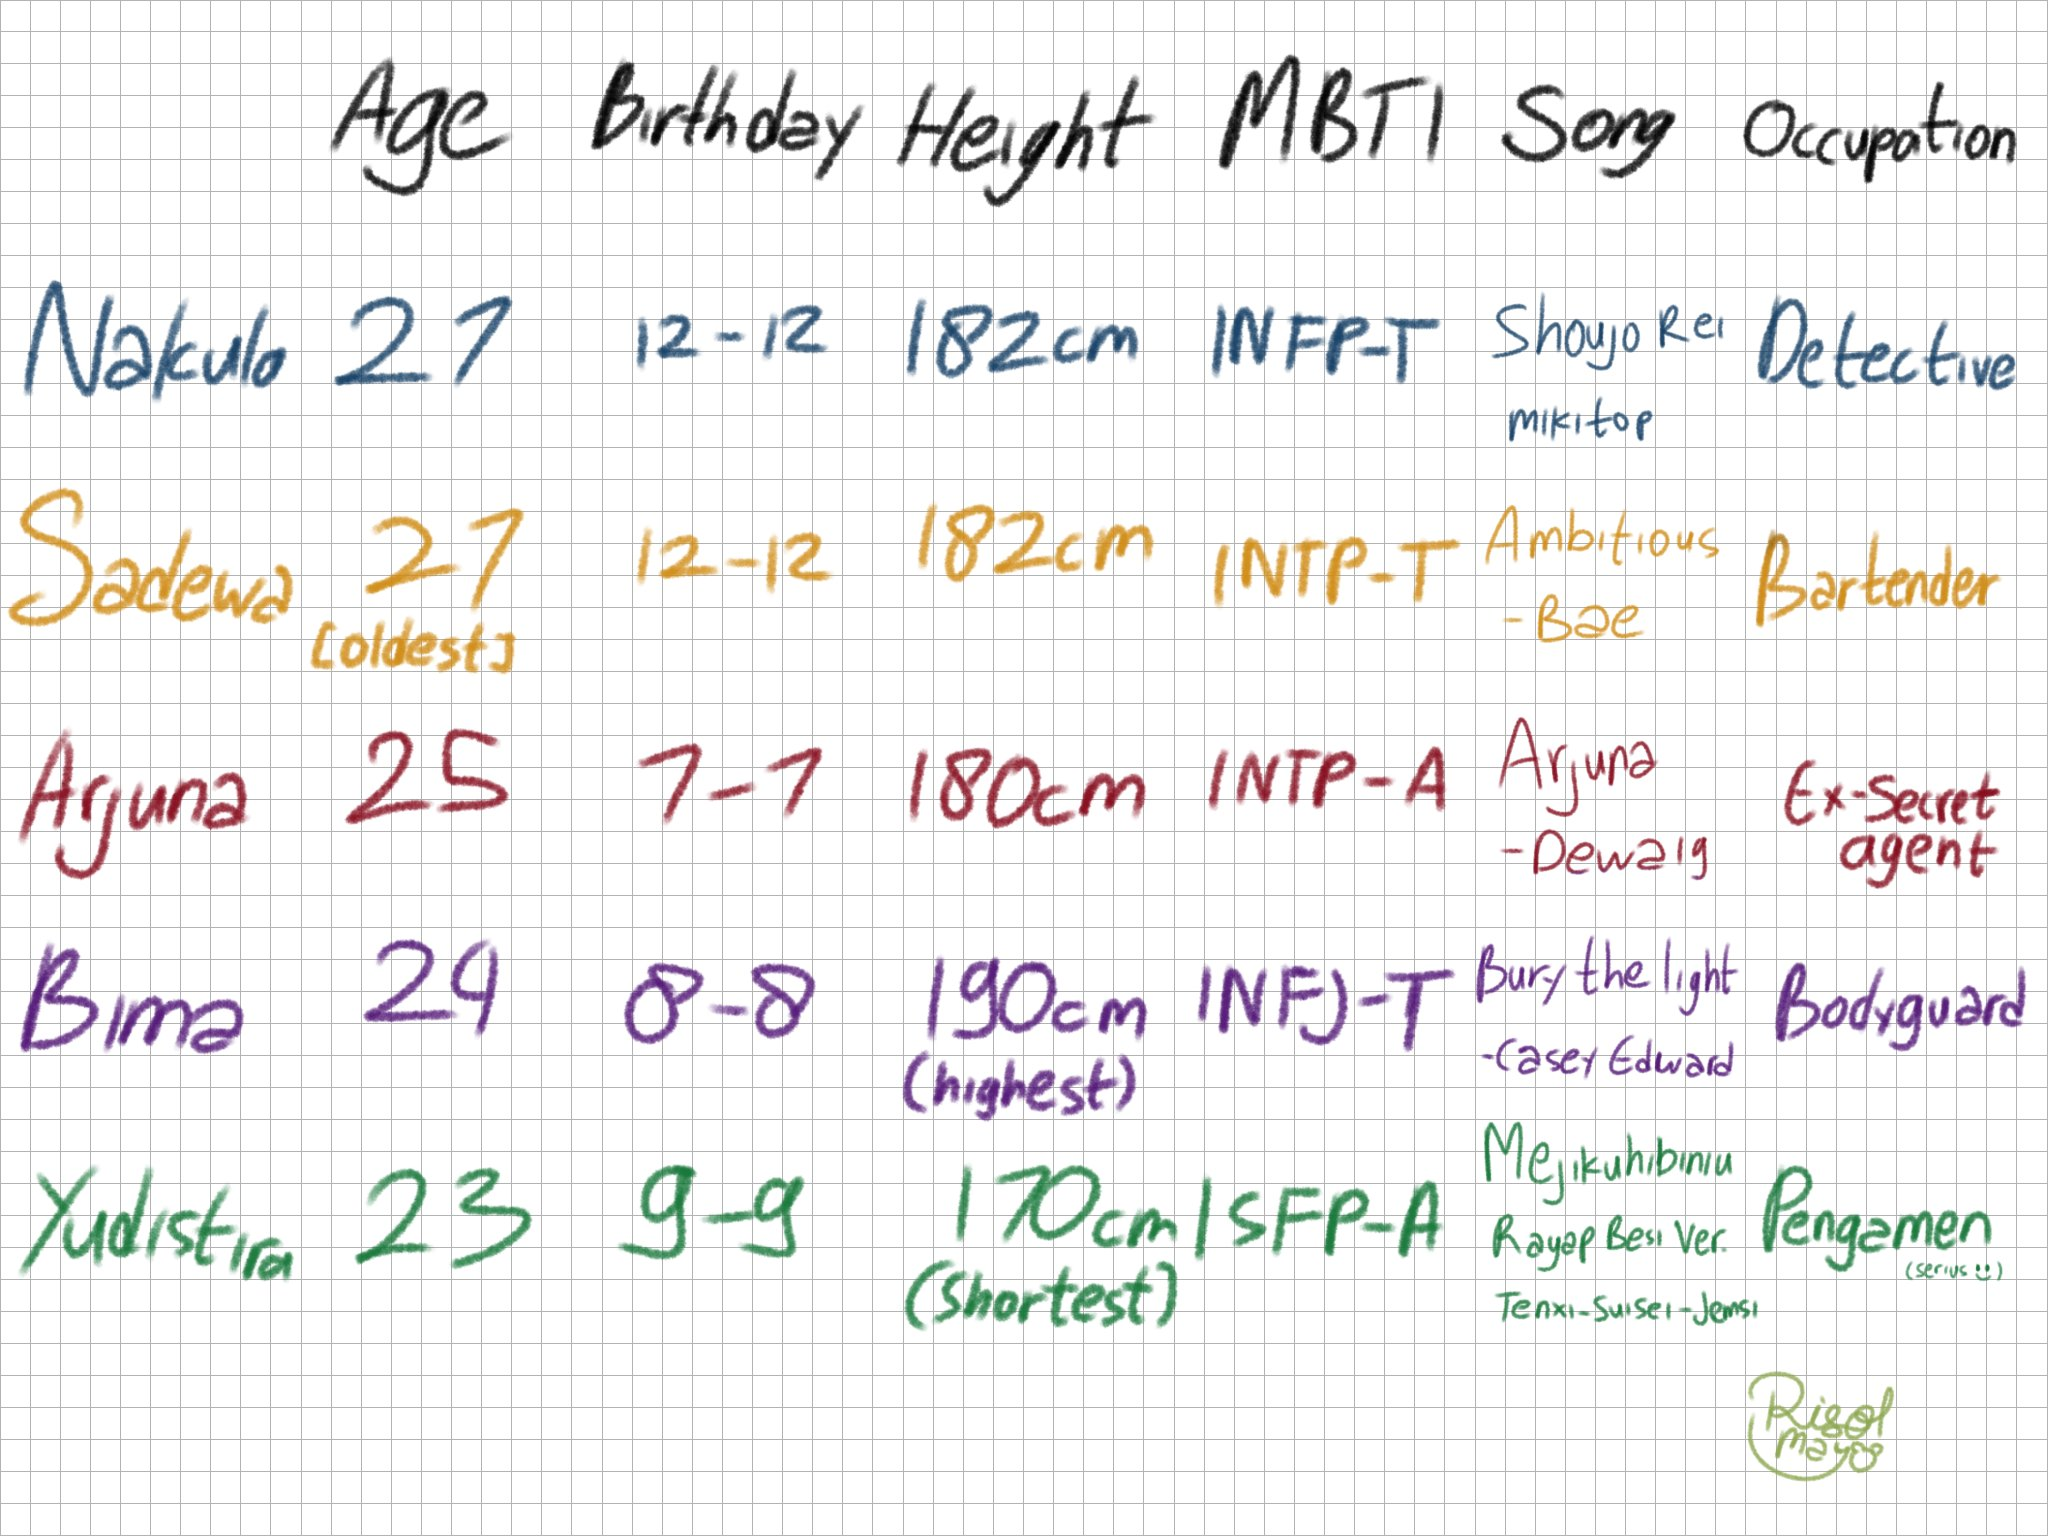 Age Birthday Height MBTI Song Occupation
Nakulo 27 12-12 182cm INFP-T Shoujo Rei Detective
mikitop
Sadewa 27 12-12 182cm INTP-T Ambitious Bartender
[oldest] -Bae
Arjuna 25 7-7 180cm INTP-A Arjuna Ex-Secret
-Dewa19 agent
Bima 24 8-8 190cm INFJ-T Bury the light Bodyguard
(highest) -Casey Edward
Yudistira 23 9-9 170cm ISFP-A Mejikuhibiniu Pengamen
Rayap Besi Ver. (serius)
(Shortest) Tenxi-Suisei-Jemsi
Risol
mayo